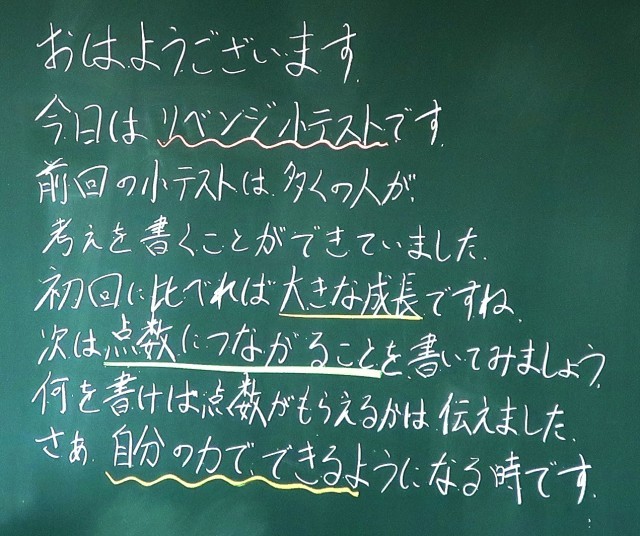 おはようございます。
今日はリベンジ小テストです。
前回の小テストは、多くの人が、
考えを書くことができていました。
初回に比べれば大きな成長ですね。
次は点数につながることを、書いてみましょう。
何を書けば点数がもらえるかは、伝えました。
さぁ、自分の力で、できるようになる時です。